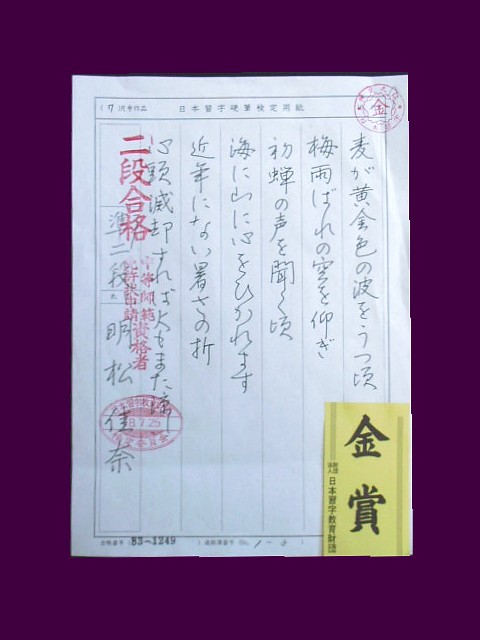 (7)月号作品
日本習字硬筆検定用紙
金
麦が黄金色の波をうつ頃
梅雨ばれの空を仰ぎ
初蝉の声を聞く頃
海に山に心をひかれます
近年にない暑さの折
心頭滅却すれば火もまた涼し
二段合格
準二段 明松佳奈
資格者
8.7.25
金賞
財団法人 日本習字教育財団
83-1249
No. 1-3